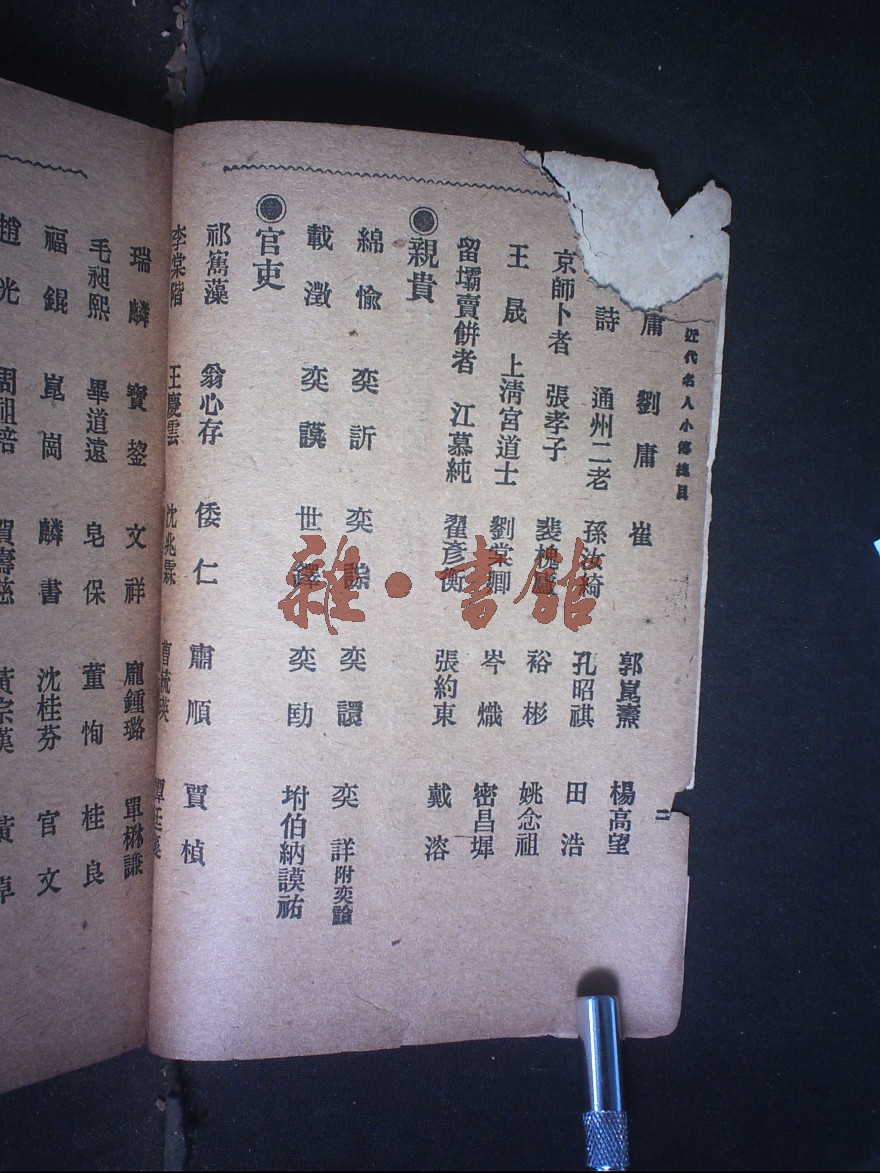 近代名人小傳總目
二
庸 劉庸 崔 郭崑燾 楊高望
詩 通州二老 孫汝綺 孔昭祺 田浩
京師卜者 張孝子 裴槐廬 裕彬 姚念祖
王晟 上清宮道士 劉棠卿 岑熾 密昌墀
留壩賣餅者 江慕純 翟彥衡 張約東 戴溶
◉親貴
綿愉 奕訢 奕誴 奕譞 奕詳附奕
載澂 奕謨 世鐸 奕劻 坿伯納謨祜
◉官吏
祁寯藻 翁心存 倭仁 肅順 賈楨
李棠階 王慶雲 沈兆霖 曹毓瑛 譚廷襄
瑞麟 寶鋆 文祥 龐鍾璐 單懋謙
毛昶熙 畢道遠 皂保 董恂 桂良
福錕 崑岡 麟書 沈桂芬 官文
趙光 周祖培 賀壽慈 黃宗漢 黃
雜·書館